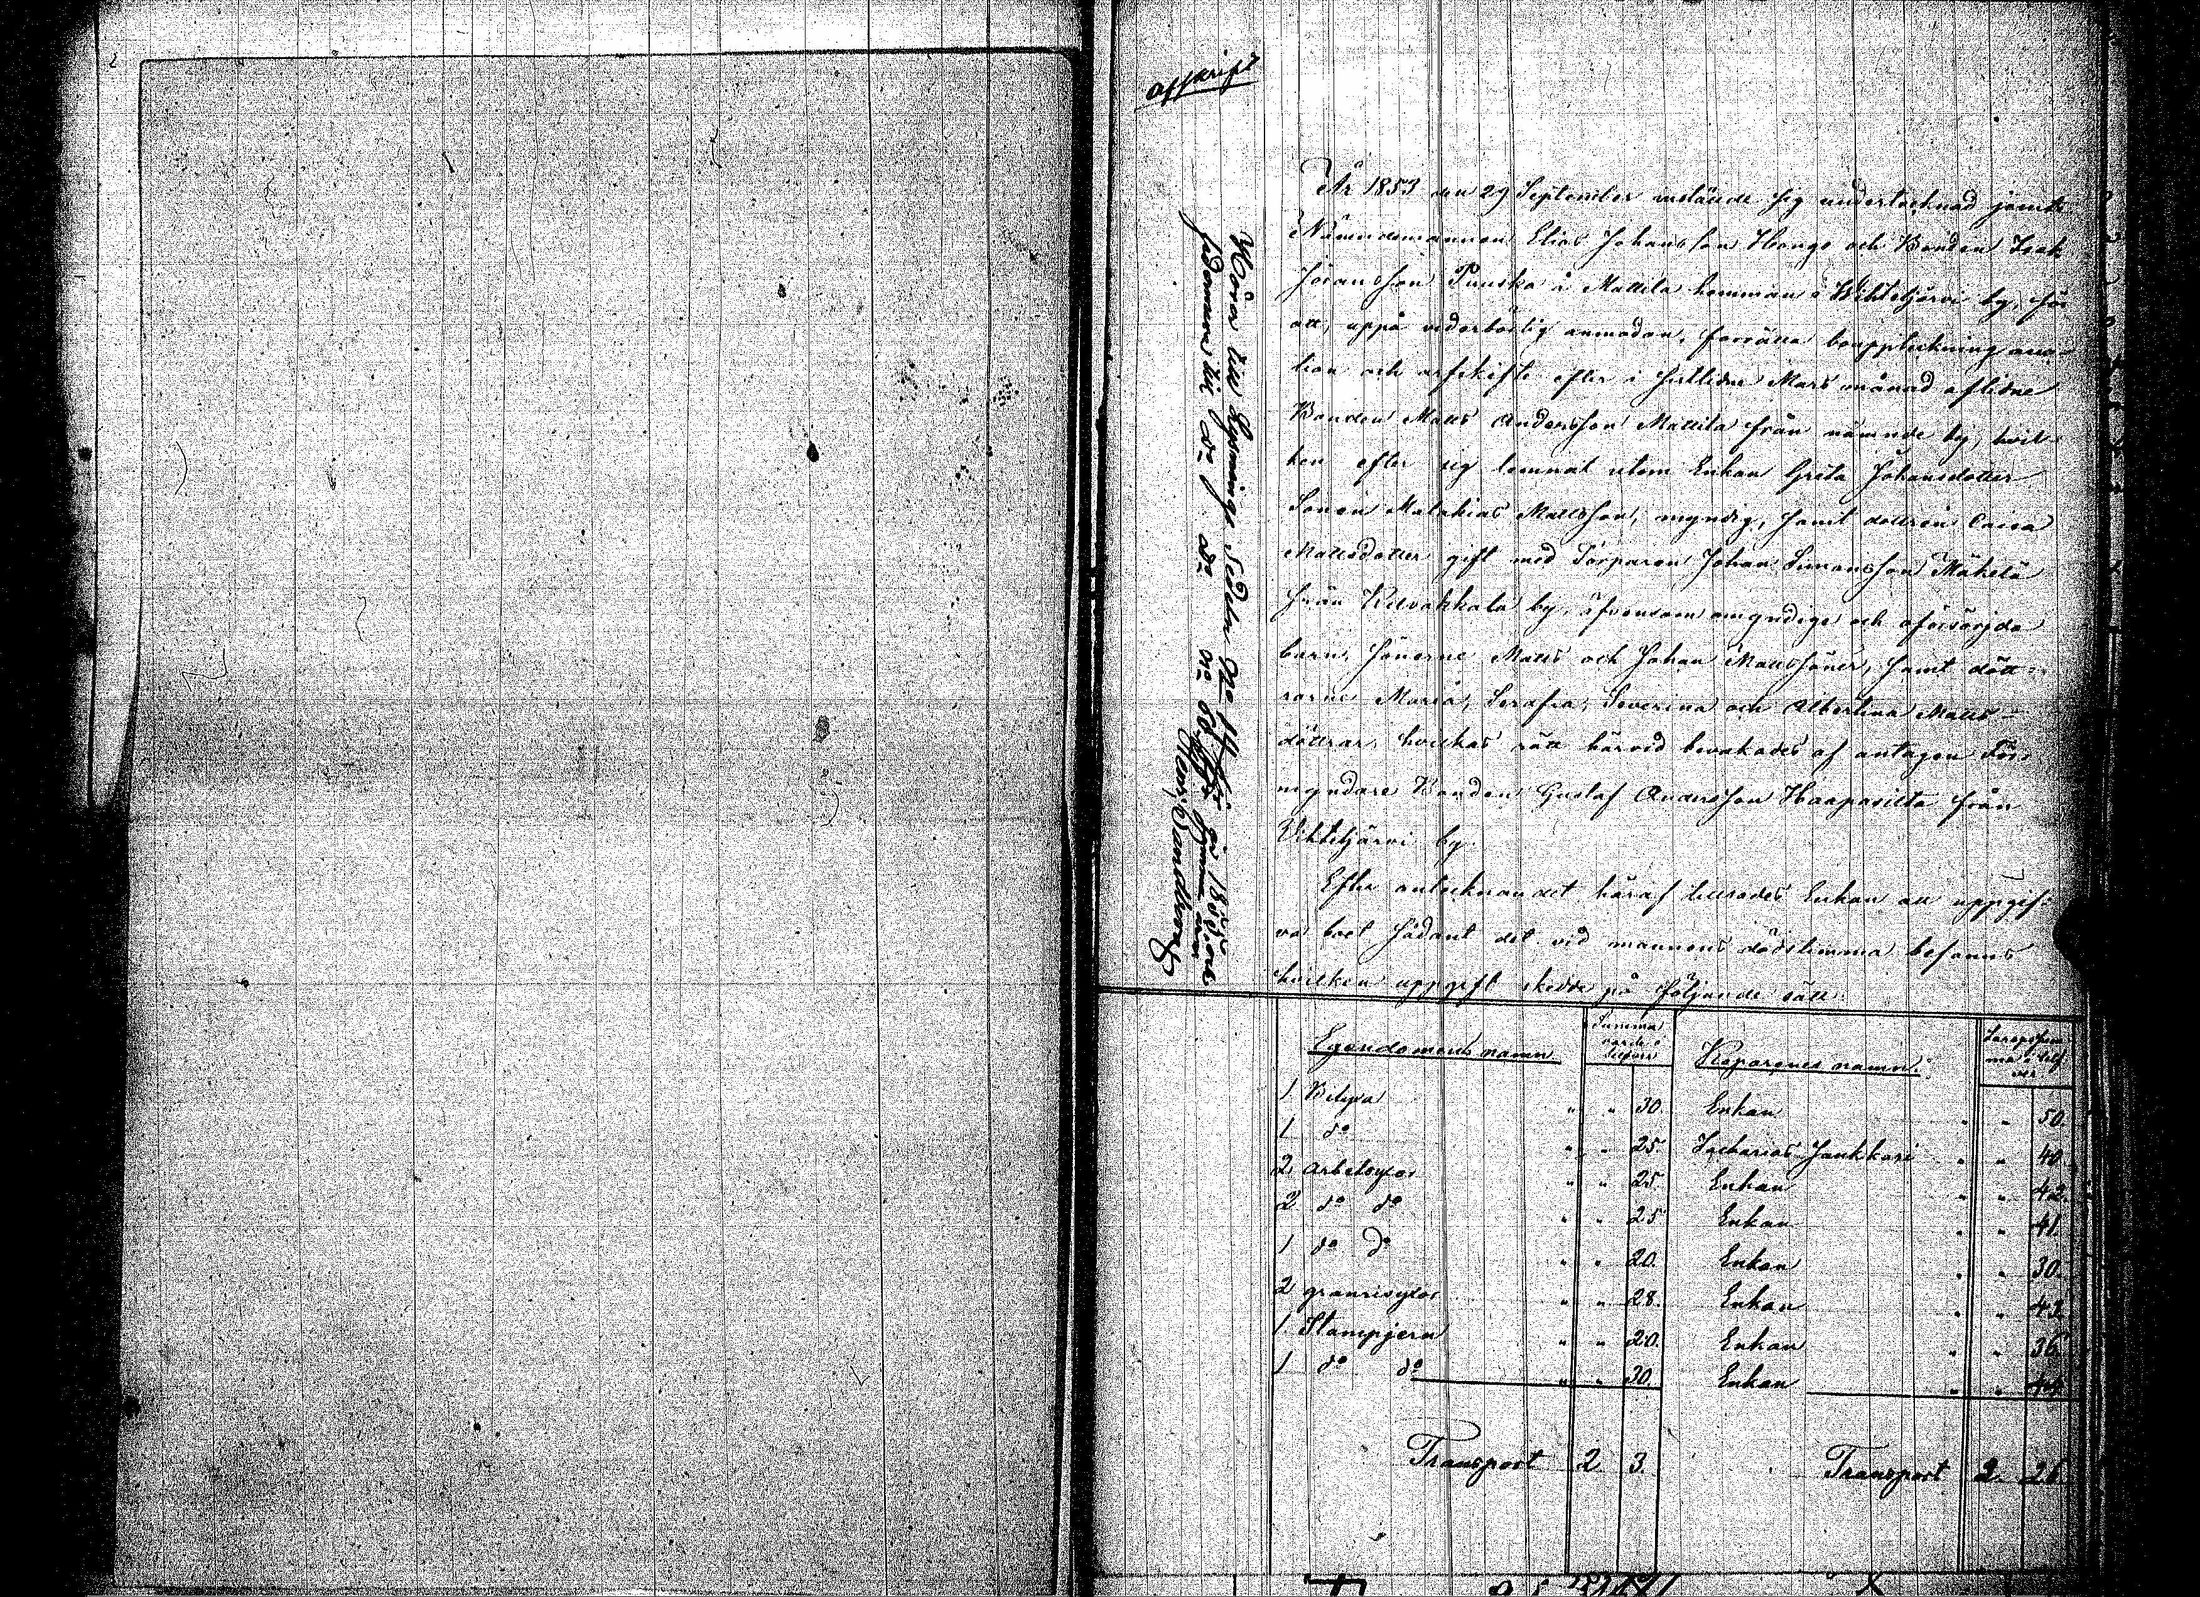 Afskrift
År 1853 den 29 September instälde sig undertecknad jemte
Nämndemannen Elias Johansson Hongo och Bonden Isak
Göransson Puuska å Mattila hemman i Wihteljärvi by, för
att, uppå vederbörlig anmodan, förrätta bouppteckning auc-
tion och arfskifte efter i sistlidne Mars månad aflidne
Bonden Matts Andersson Mattila från nämnde by, hvil-
ken efter sig lemnat utom Enkan Greta Johansdotter
Sonen Malakias Mattsson, myndig, samt dottren Caisa
Mattsdotter gift med Torparen Johan Simonsson Mäkelä
från Kilvakkala by, äfvensom omyndige och oförsörjda
barn, Sönerne Matts och Johan Mattssöner, samt dött-
rarne Maria, Serafia, Severina och Albertina Matts-
döttrar, hvilkas rätt härvid bevakades af antagen För-
myndare Bonden Gustaf Andersson Haapasilta från
Vihteljärvi by.
Efter antecknandet häraf tillsades Enkan att uppgif-
va boet sådant det vid mannens dödstimma befanns
hvilken uppgift skedde på följande sätt:
Höra till Lysnings Sedeln No 14 för år 1855 och
sedamera till do do No
Henr. Sandberg
Egendomens namn Summa värde i Silfver Köparenes namn Inropssum-
ma i Silf
ver
1 Bilyxa " " 30. Enkan " " 50.
1 do " " 25. Zacharias Jankkari " " 40.
2 arbetsyxor " " 25. Enkan " " 42.
2 do do " " 25 Enkan " " 41.
1 do do " " 20. Enkan " " 30.
2 granrisyxor " " 28. Enkan " " 43
1 Stampjern " " 20. Enkan " " 36.
1 do do " " 30. Enkan " " 44.
Transport 2 3. Transport 3 26.